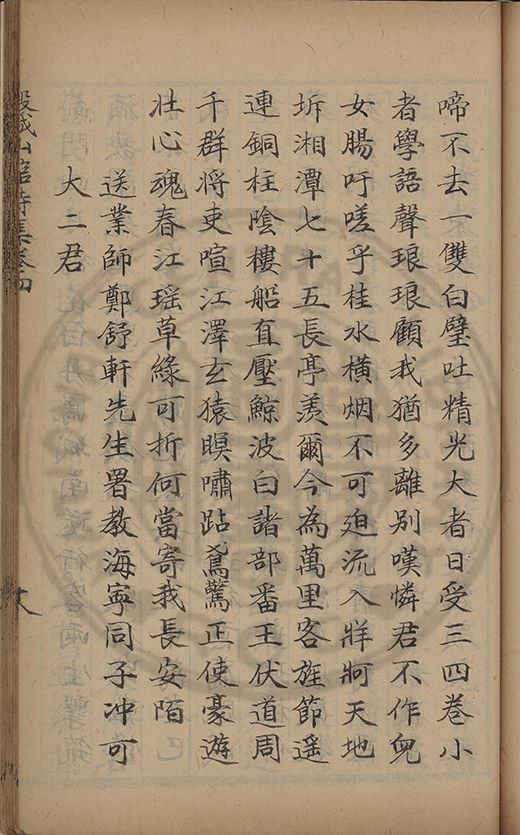 啼不去一雙白璧吐精光大者日受三四卷小
者學語聲琅琅顧我猶多離別嘆憐君不作兒
女腸吁嗟乎桂水橫烟不可廻流入牂牁天地
坼湘潭七十五長亭羨爾今為萬里客旌節遥
連銅柱陰樓船直壓鯨波白諸部番王伏道周
千群將吏喧江澤玄猿瞑嘯跕鳶驚正使豪遊
壯心魂春江瑶草綠可折何當寄我長安陌
送業師鄭舒軒先生署教海寧同子冲可
大二君
穀城山館詩集卷四